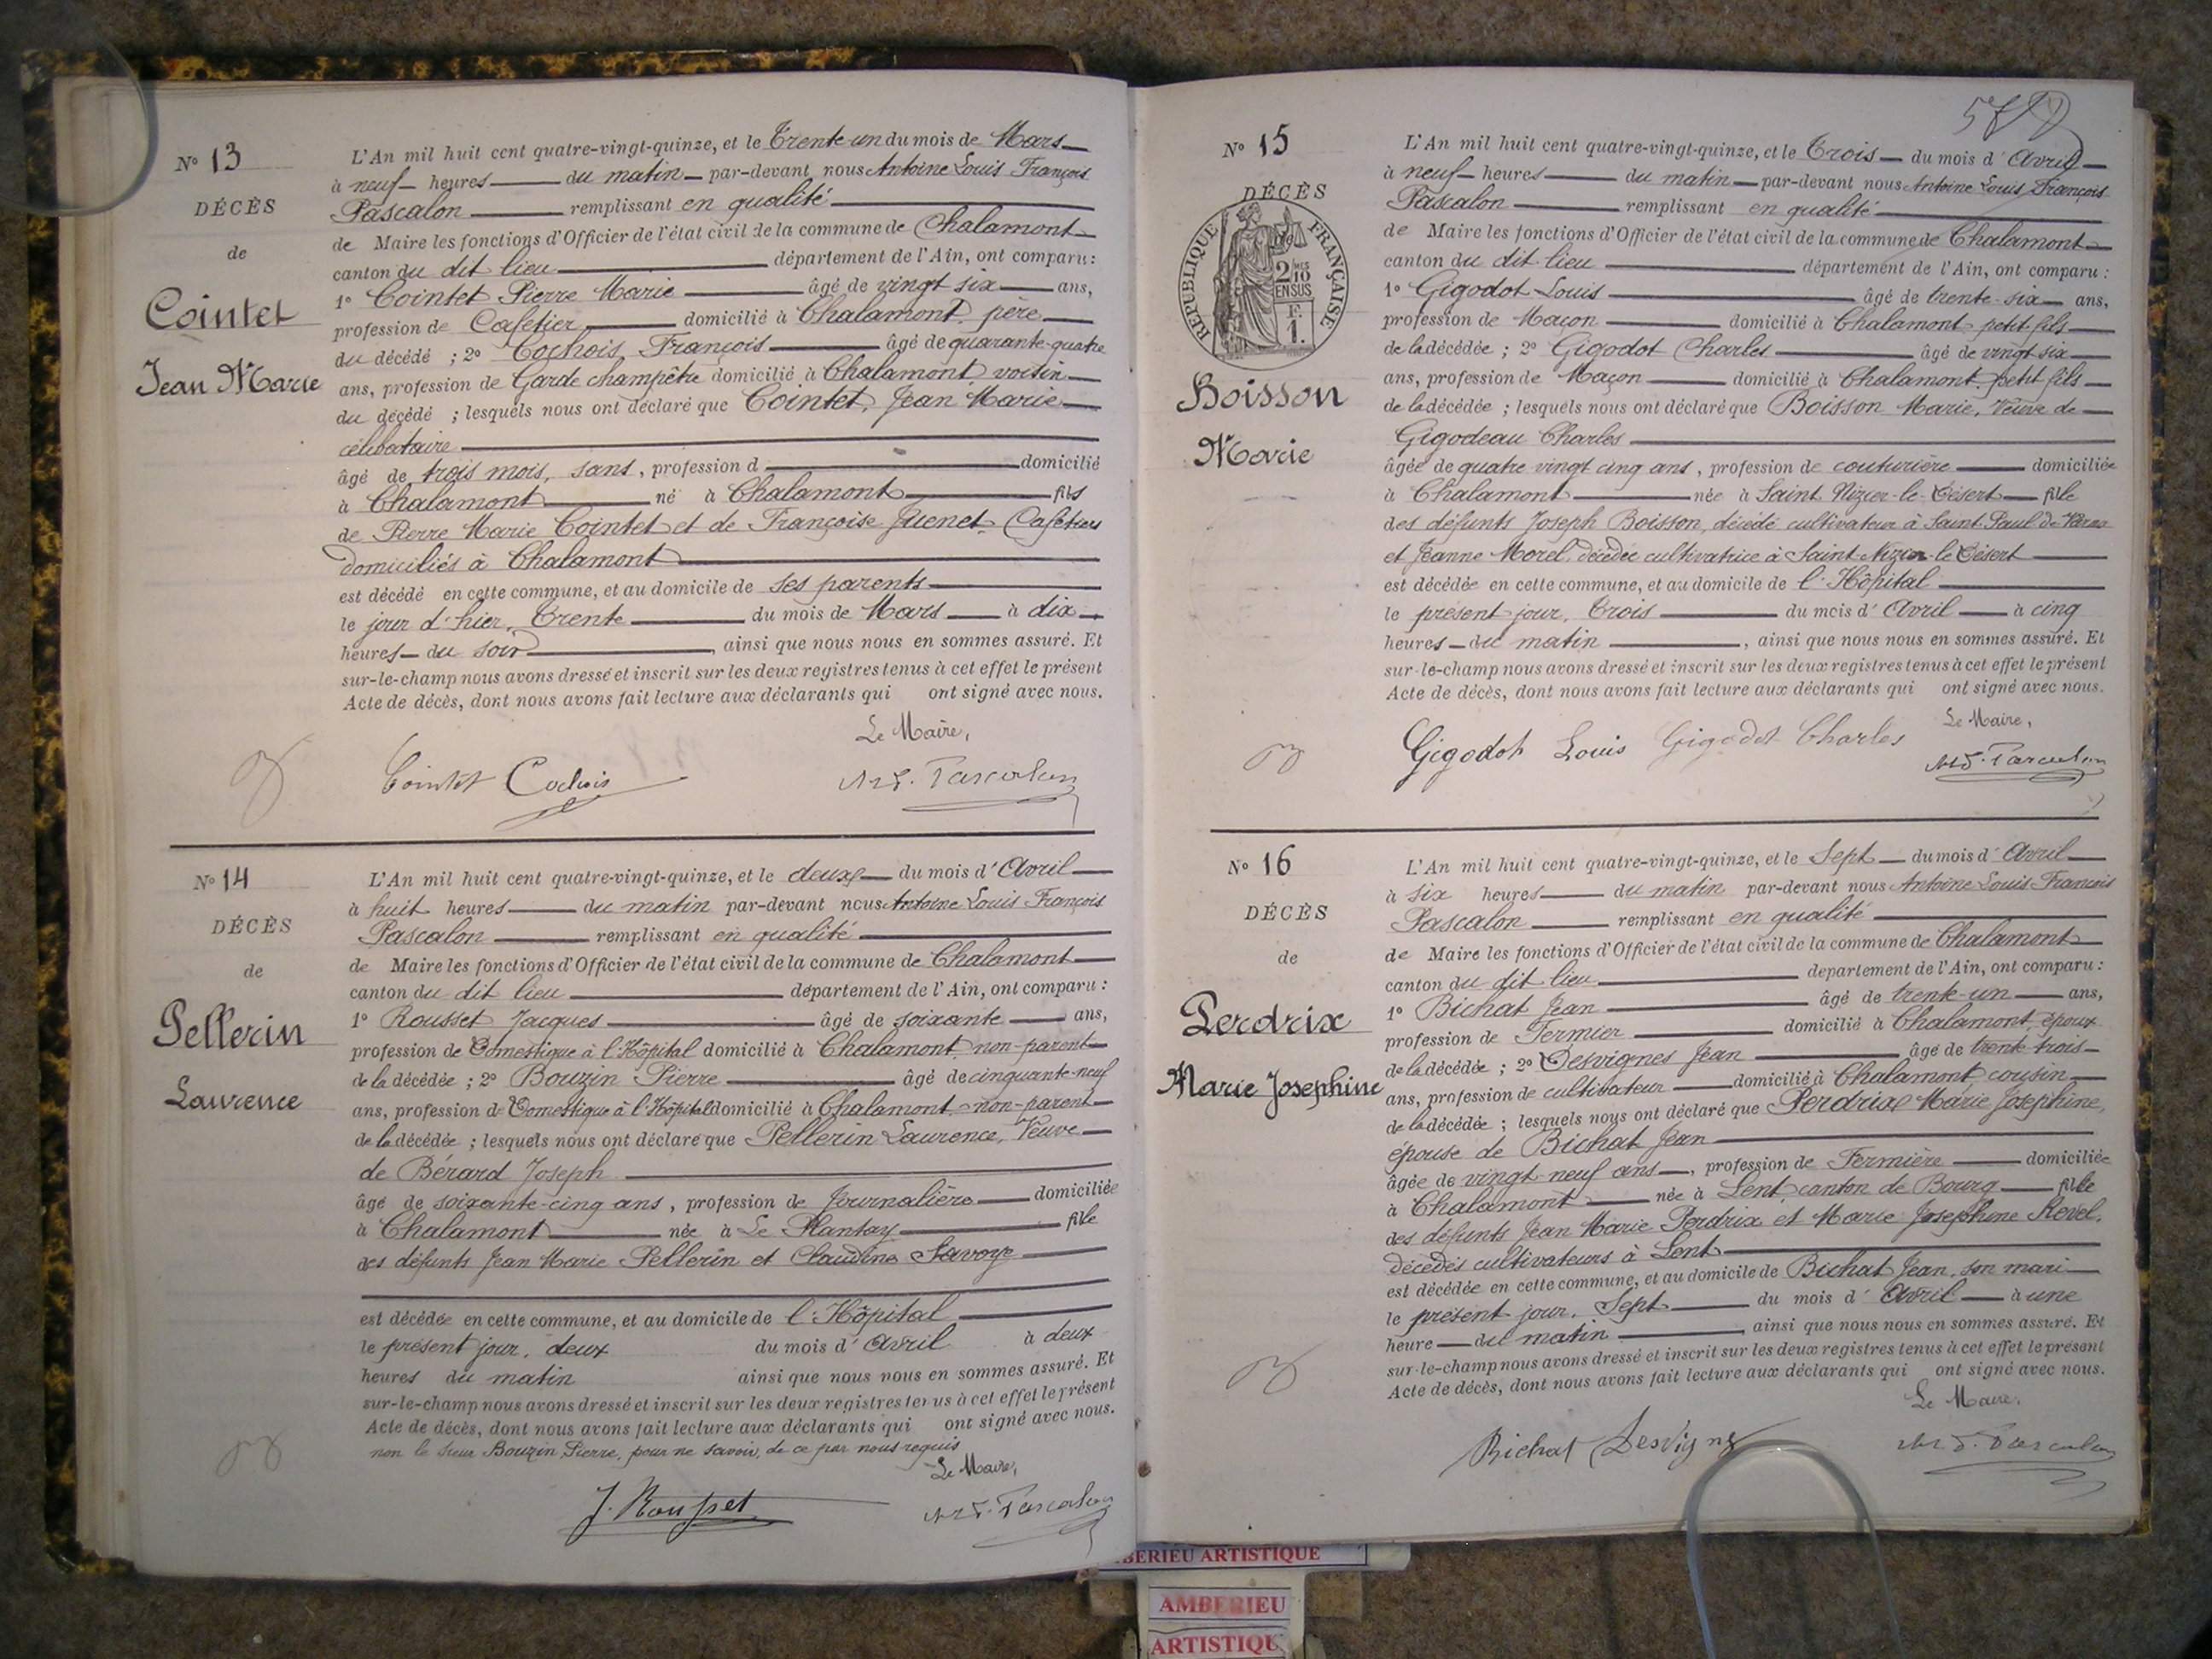 N° 13
DÉCÈS
de
Cointet
Jean Marie
L'An mil huit cent quatre-vingt-quinze, et le Trente-un du mois de Mars
à neuf heures du matin par-devant nous Antoine Louis François
Pascalon remplissant en qualité
de Maire les fonctions d'Officier de l'état civil de la commune de Chalamont
canton du dit lieu département de l'Ain, ont comparu :
1° Cointet Pierre Marie âgé de vingt six ans,
profession de Cafetier domicilié à Chalamont, père
du décédé ; 2° Cochois François âgé de quarante-quatre
ans, profession de Garde champêtre domicilié à Chalamont, voisin
du décédé ; lesquels nous ont déclaré que Cointet, Jean Marie
célibataire
âgé de trois mois, sans, profession d domicilié
à Chalamont né à Chalamont fils
de Pierre Marie Cointet et de Françoise Guenet, Cafetiers
domiciliés à Chalamont
est décédé en cette commune, et au domicile de ses parents
le jour d'hier, Trente du mois de Mars à dix
heures du soir, ainsi que nous nous en sommes assuré. Et
sur-le-champ nous avons dressé et inscrit sur les deux registres tenus à cet effet le présent
Acte de décès, dont nous avons fait lecture aux déclarants qui ont signé avec nous.
Le Maire,
Cointet Cochois Pascalon
N° 14
DÉCÈS
de
Pellerin
Laurence
L'An mil huit cent quatre-vingt-quinze, et le deux du mois d'Avril
à huit heures du matin par-devant nous Antoine Louis François
Pascalon remplissant en qualité
de Maire les fonctions d'Officier de l'état civil de la commune de Chalamont
canton du dit lieu département de l'Ain, ont comparu :
1° Rousset Jacques âgé de soixante ans,
profession de Domestique à l'Hôpital domicilié à Chalamont, non-parent
de la décédée ; 2° Bouzin Pierre âgé de cinquante-neuf
ans, profession de Domestique à l'Hôpital domicilié à Chalamont, non-parent
de la décédée ; lesquels nous ont déclaré que Pellerin Laurence, Veuve
de Bérard Joseph
âgé de soixante-cinq ans, profession de Journalière domiciliée
à Chalamont née à Le Plantay fille
des défunts Jean Marie Pellerin et Claudine Savoye
est décédée en cette commune, et au domicile de l'Hôpital
le présent jour, deux du mois d'Avril à deux
heures du matin ainsi que nous nous en sommes assuré. Et
sur-le-champ nous avons dressé et inscrit sur les deux registres tenus à cet effet le présent
Acte de décès, dont nous avons fait lecture aux déclarants qui ont signé avec nous.
non le sieur Bouzin Pierre, pour ne savoir, de ce par nous requis
Le Maire,
J. Rousset Pascalon
N° 15
DÉCÈS
RÉPUBLIQUE FRANÇAISE
2/10 EN SUS
F. 1.
Boisson
Marie
L'An mil huit cent quatre-vingt-quinze, et le Trois du mois d'Avril
à neuf heures du matin par-devant nous Antoine Louis François
Pascalon remplissant en qualité
de Maire les fonctions d'Officier de l'état civil de la commune de Chalamont
canton du dit lieu département de l'Ain, ont comparu :
1° Gigodot Louis âgé de trente-six ans,
profession de Maçon domicilié à Chalamont, petit-fils
de la décédée ; 2° Gigodot Charles âgé de vingt six
ans, profession de Maçon domicilié à Chalamont, petit fils
de la décédée ; lesquels nous ont déclaré que Boisson Marie, Veuve de
Gigodeau Charles
âgée de quatre vingt cinq ans, profession de couturière domiciliée
à Chalamont née à Saint Nizier-le-Désert fille
des défunts Joseph Boisson, décédé cultivateur à Saint Paul de Varax
et Jeanne Morel, décédée cultivatrice à Saint-Nizier-le Désert
est décédée en cette commune, et au domicile de l'Hôpital
le présent jour, Trois du mois d'Avril à cinq
heures du matin, ainsi que nous nous en sommes assuré. Et
sur-le-champ nous avons dressé et inscrit sur les deux registres tenus à cet effet le présent
Acte de décès, dont nous avons fait lecture aux déclarants qui ont signé avec nous.
Le Maire,
Gigodot Louis Gigodot Charles Pascalon
N° 16
DÉCÈS
de
Perdrix
Marie Josephine
L'An mil huit cent quatre-vingt-quinze, et le Sept du mois d'Avril
à six heures du matin par-devant nous Antoine Louis François
Pascalon remplissant en qualité
de Maire les fonctions d'Officier de l'état civil de la commune de Chalamont
canton du dit lieu département de l'Ain, ont comparu :
1° Bichat Jean âgé de trente-un ans,
profession de Fermier domicilié à Chalamont, époux
de la décédée ; 2° Desvignes Jean âgé de trente trois
ans, profession de cultivateur domicilié à Chalamont, cousin
de la décédée ; lesquels nous ont déclaré que Perdrix Marie Josephine,
épouse de Bichat Jean
âgée de vingt-neuf ans, profession de Fermière domiciliée
à Chalamont née à Lent canton de Bourg fille
des défunts Jean Marie Perdrix et Marie Josephine Revel,
décédés cultivateurs à Lent
est décédée en cette commune, et au domicile de Bichat Jean, son mari
le présent jour, Sept du mois d'Avril à une
heure du matin, ainsi que nous nous en sommes assuré. Et
sur-le-champ nous avons dressé et inscrit sur les deux registres tenus à cet effet le présent
Acte de décès, dont nous avons fait lecture aux déclarants qui ont signé avec nous.
Le Maire,
Bichat Desvigne Pascalon
BERIEU ARTISTIQUE
AMBERIEU
ARTISTIQU